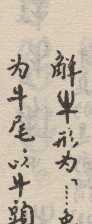 解牛形为「……
为牛尾,以牛頭